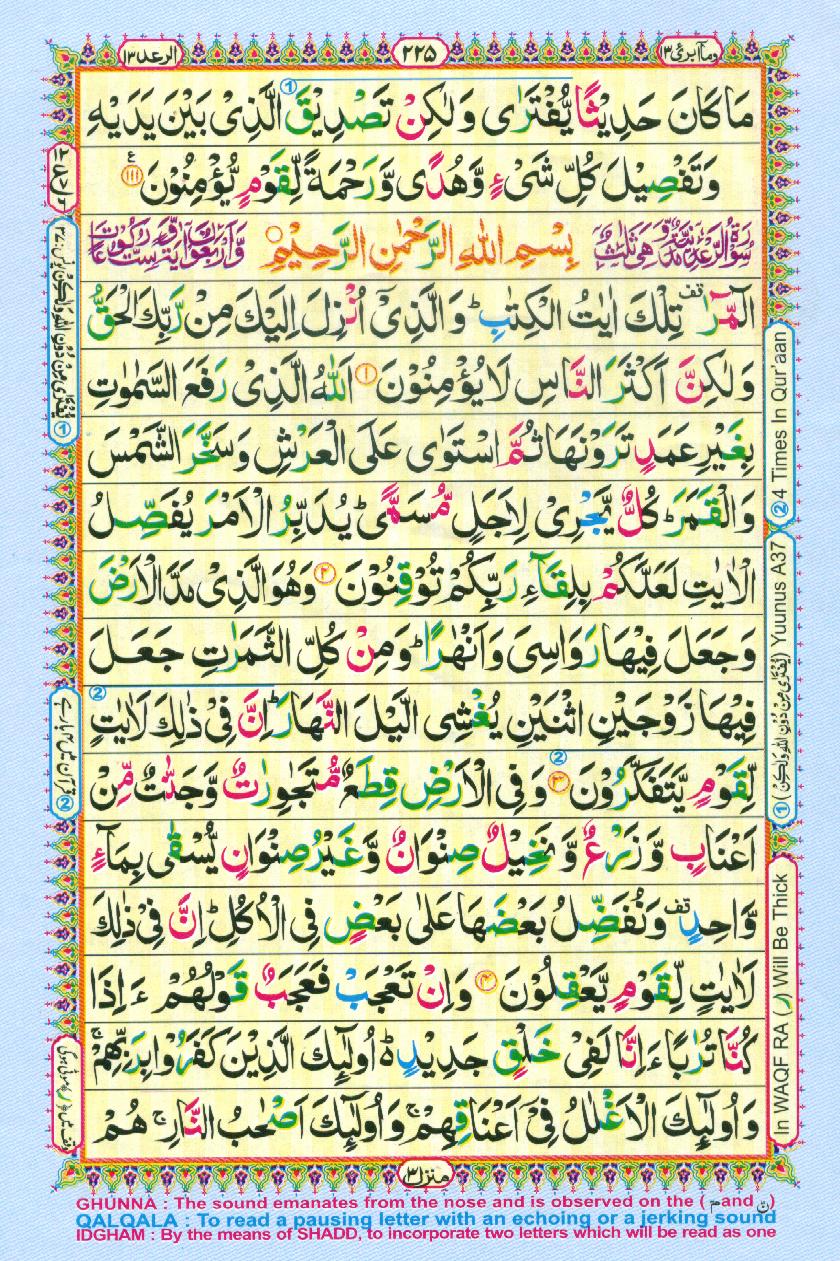 وما ابرئ ۱۳
۲۲۵
الرعد ۱۳
مَا كَانَ حَدِيْثًا يُّفْتَرٰى وَلٰكِنْ تَصْدِيْقَ الَّذِىْ بَيْنَ يَدَيْهِ
وَتَفْصِيْلَ كُلِّ شَىْءٍ وَّهُدًى وَّرَحْمَةً لِّقَوْمٍ يُّؤْمِنُوْنَ ۝۱۱۱
بِسْمِ اللهِ الرَّحْمٰنِ الرَّحِيْمِ
الٓمّٓرٰ ۫ تِلْكَ اٰيٰتُ الْكِتٰبِ ؕ وَالَّذِىْۤ اُنْزِلَ اِلَيْكَ مِنْ رَّبِّكَ الْحَقُّ
وَلٰكِنَّ اَكْثَرَ النَّاسِ لَا يُؤْمِنُوْنَ ۝۱ اَللهُ الَّذِىْ رَفَعَ السَّمٰوٰتِ
بِغَيْرِ عَمَدٍ تَرَوْنَهَا ثُمَّ اسْتَوٰى عَلَى الْعَرْشِ وَسَخَّرَ الشَّمْسَ
وَالْقَمَرَ ؕ كُلٌّ يَّجْرِىْ لِاَجَلٍ مُّسَمًّى ؕ يُدَبِّرُ الْاَمْرَ يُفَصِّلُ
الْاٰيٰتِ لَعَلَّكُمْ بِلِقَآءِ رَبِّكُمْ تُوْقِنُوْنَ ۝۲ وَهُوَ الَّذِىْ مَدَّ الْاَرْضَ
وَجَعَلَ فِيْهَا رَوَاسِىَ وَاَنْهٰرًا ؕ وَمِنْ كُلِّ الثَّمَرٰتِ جَعَلَ
فِيْهَا زَوْجَيْنِ اثْنَيْنِ يُغْشِى الَّيْلَ النَّهَارَ ؕ اِنَّ فِىْ ذٰلِكَ لَاٰيٰتٍ
لِّقَوْمٍ يَّتَفَكَّرُوْنَ ۝۳ وَفِى الْاَرْضِ قِطَعٌ مُّتَجٰوِرٰتٌ وَّجَنّٰتٌ مِّنْ
اَعْنَابٍ وَّزَرْعٌ وَّنَخِيْلٌ صِنْوَانٌ وَّغَيْرُ صِنْوَانٍ يُّسْقٰى بِمَآءٍ
وَّاحِدٍ ۫ وَنُفَضِّلُ بَعْضَهَا عَلٰى بَعْضٍ فِى الْاُكُلِ ؕ اِنَّ فِىْ ذٰلِكَ
لَاٰيٰتٍ لِّقَوْمٍ يَّعْقِلُوْنَ ۝۴ وَاِنْ تَعْجَبْ فَعَجَبٌ قَوْلُهُمْ ءَاِذَا
كُنَّا تُرٰبًا ءَاِنَّا لَفِىْ خَلْقٍ جَدِيْدٍ ؕ اُولٰٓئِكَ الَّذِيْنَ كَفَرُوْا بِرَبِّهِمْ ۚ
وَاُولٰٓئِكَ الْاَغْلٰلُ فِىْۤ اَعْنَاقِهِمْ ۚ وَاُولٰٓئِكَ اَصْحٰبُ النَّارِ ۚ هُمْ
② 4 Times In Qur'aan
① (يَفْتَرٰى مِنْ دُوْنِ اللهِ وَلٰكِنْ) Yuunus A37
In WAQF RA (ر) Will Be Thick
منزل ۳
GHUNNA : The sound emanates from the nose and is observed on the (مّ and نّ)
QALQALA : To read a pausing letter with an echoing or a jerking sound
IDGHAM : By the means of SHADD, to incorporate two letters which will be read as one